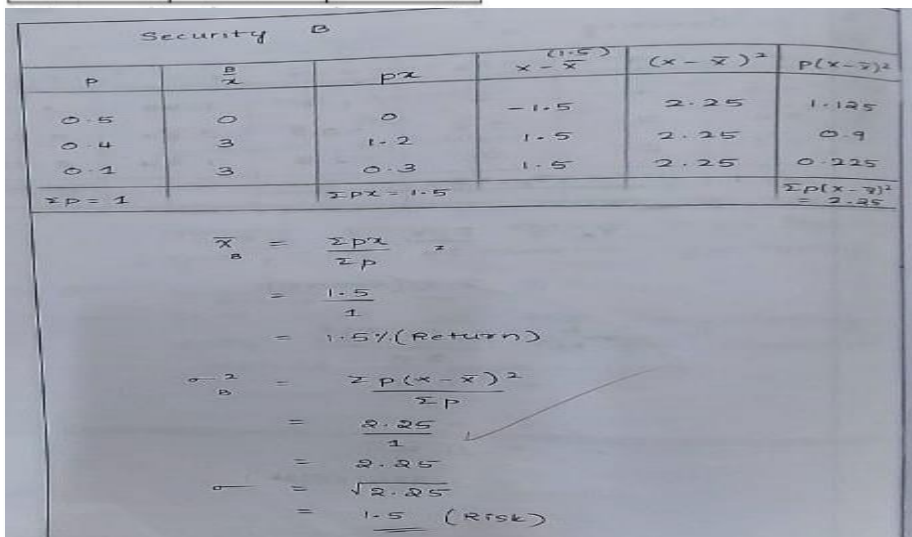 Security B
p B/x px x - x̄ (1.5) (x - x̄)² p(x-x̄)²
0.5 0 0 -1.5 2.25 1.125
0.4 3 1.2 1.5 2.25 0.9
0.1 3 0.3 1.5 2.25 0.225
Σp = 1 Σpx = 1.5 Σp(x-x̄)² = 2.25
x̄_B = Σpx / Σp =
= 1.5 / 1
= 1.5% (Return)
σ²_B = Σp(x-x̄)² / Σp
= 2.25 / 1
= 2.25
σ = √2.25
= 1.5 (Risk)